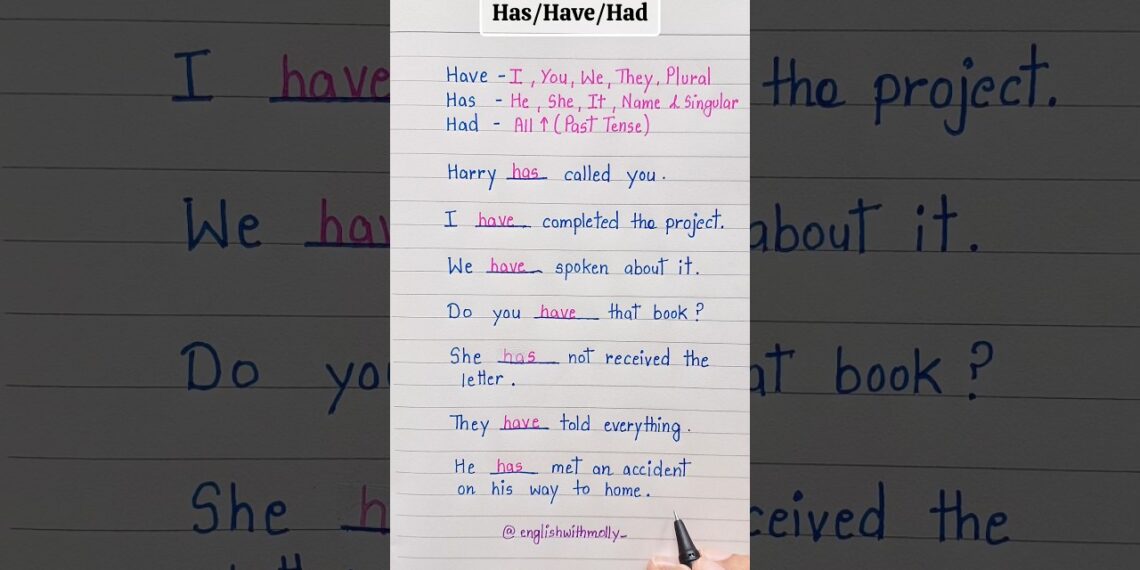 Has/Have/Had
Have - I, You, We, They, Plural
Has - He, She, It, Name & Singular
Had - All ↑ (Past Tense)
Harry has called you.
I have completed the project.
We have spoken about it.
Do you have that book?
She has not received the
letter.
They have told everything.
He has met an accident
on his way to home.
@englishwithmolly_
I have
the project.
We hav
about it.
Do you
at book?
She h
ceived the